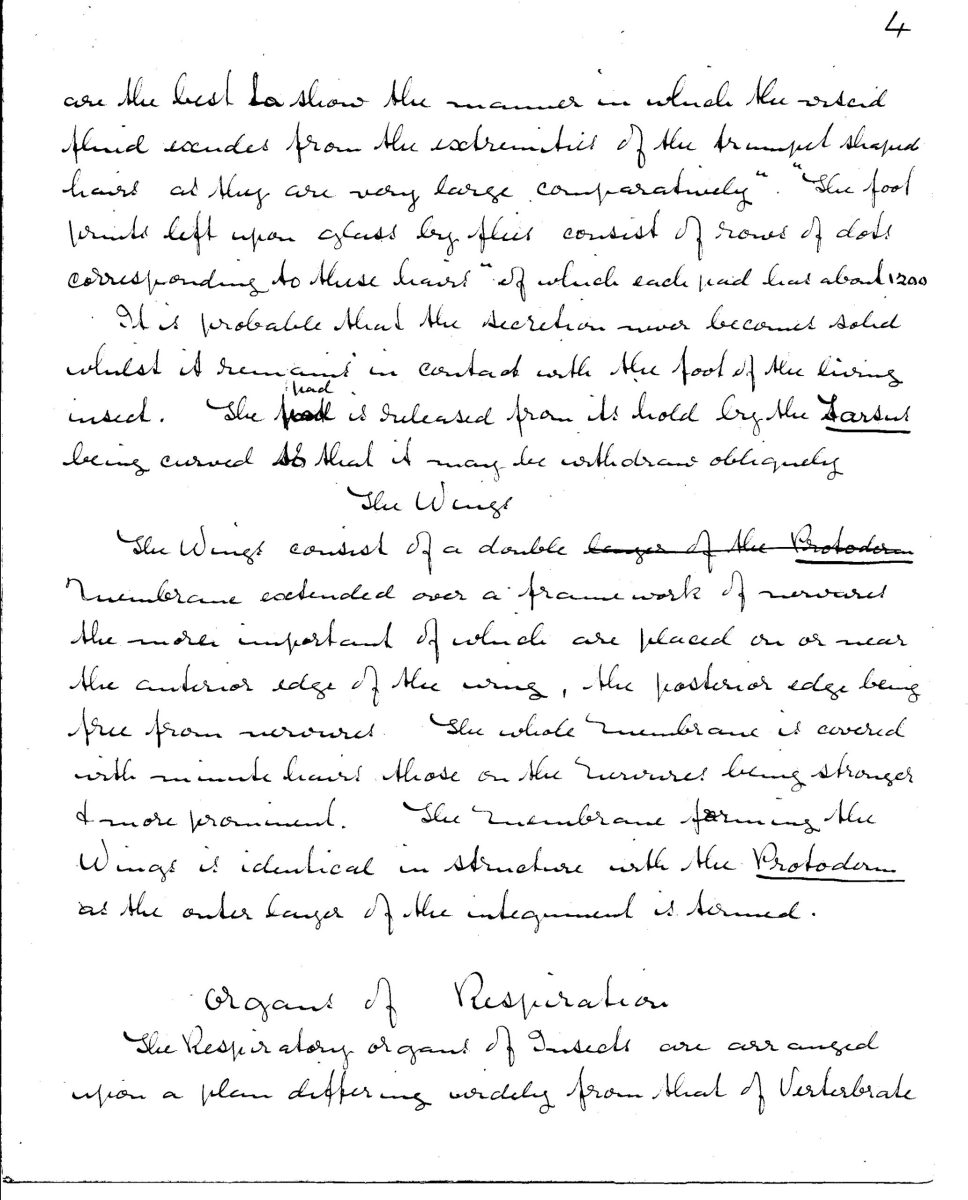 4
are the best to show the manner in which the viscid
fluid exudes from the extremities of the trumpet shaped
hairs as they are very large comparatively". "The foot
prints left upon glass by flies consist of rows of dots
corresponding to these hairs" of which each pad has about 1200
It is probable that the secretion never becomes solid
whilst it remains in contact with the foot of the living
pad
insect. The is released from its hold by the Tarsus
being curved so that it may be withdraw obliquely
The Wings
The Wings consist of a double layer of the Protoderm
Membrane extended over a frame work of nervures
the more important of which are placed on or near
the anterior edge of the wing, the posterior edge being
free from nervures. The whole Membrane is covered
with minute hairs those on the Nervures being stronger
& more prominent. The Membrane forming the
Wings is identical in structure with the Protoderm
as the outer layer of the integument is termed.
Organs of Respiration
The Respiratory organs of Insects are arranged
upon a plan differing widely from that of Verterbrate